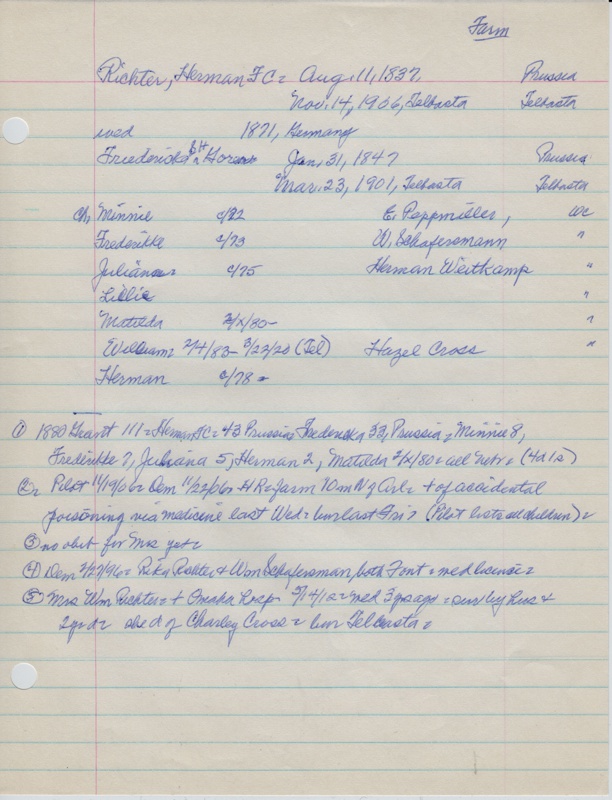 Farm
Richter, Herman FC = Aug. 11, 1837, Prussia
Nov. 14, 1906, Telbasta Telbasta
wed 1871, Germany
Friedericka Jan. 31, 1847 Prussia
Mar. 23, 1901, Telbasta Telbasta
ch, Minnie c/72 E. Peppmiller, WC
Frederikke c/73 W. Schafersmann "
Juliana c/75 Herman Weitkamp "
Lillie "
Matilda 2/x/80 - "
William 2/4/83 - 3/22/20 (Tel) Hazel Cross "
Herman c/78 =
① 1880 Grant 111 = Herman FC = 43 Prussia, Fredericka 33, Prussia, Minnie 8,
Frederikke 7, Juliana 5, Herman 2, Matilda 2/x/80 = all Nebr = (4d 1s)
② Pilot 11/19/06 = Dem 11/22/06 = HR = farm 10 m N of Arl = + of accidental
poisoning via medicine last Wed = bur last Fri = (Pilot lists all children) =
③ no obit for Mrs yet =
④ Dem 2/27/96 = Rika Richter & Wm Schafersman, both Font = wed license =
⑤ Mrs Wm Richter = + Omaha hosp 5/14/15 = wed 3 yrs ago = surv by hus &
she d of Charley Cross = bur Telbasta =